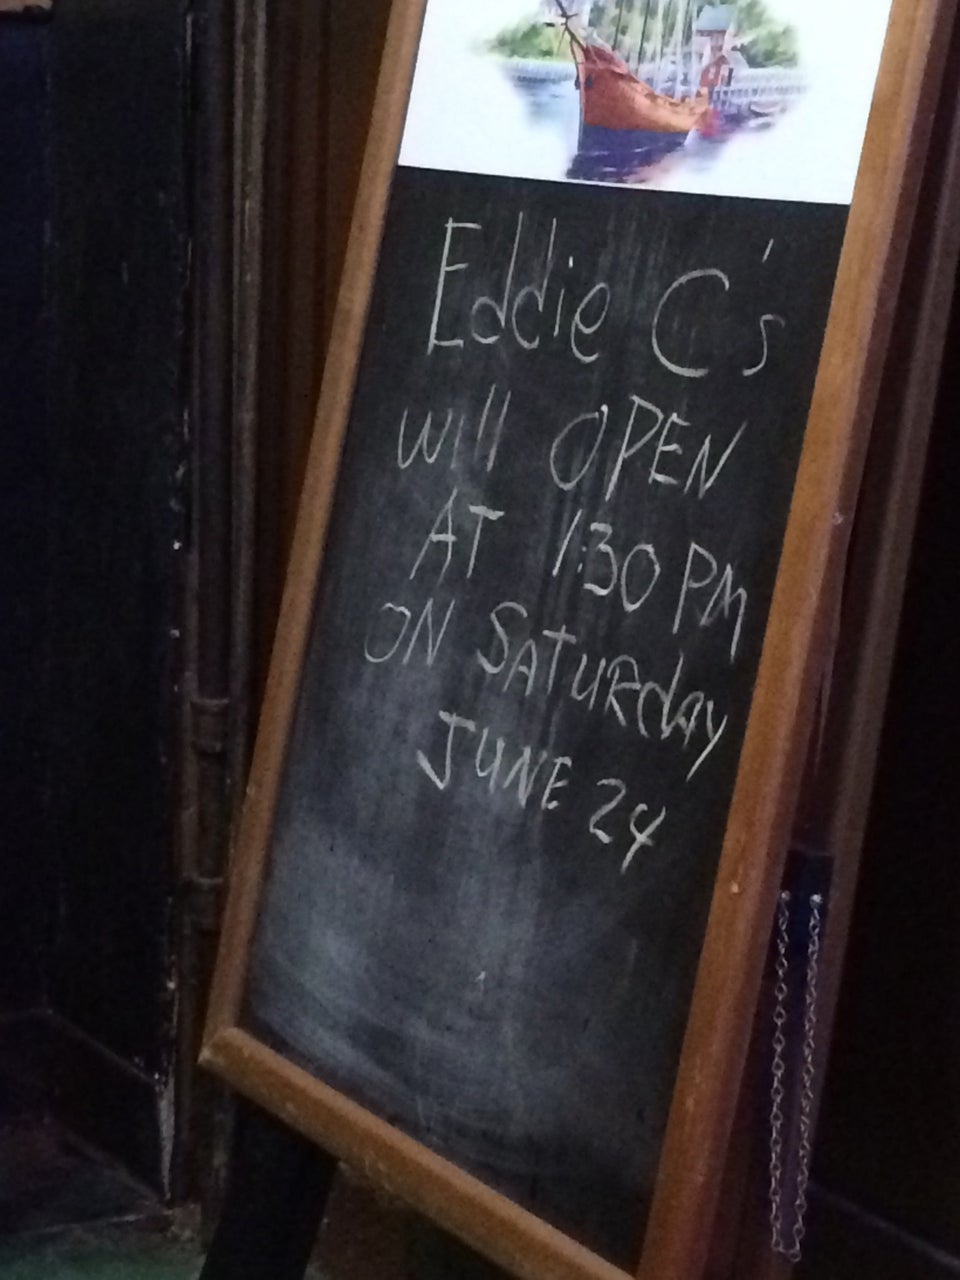 Eddie C's
will OPEN
AT 1:30 PM
ON SATURday
JUNE 24